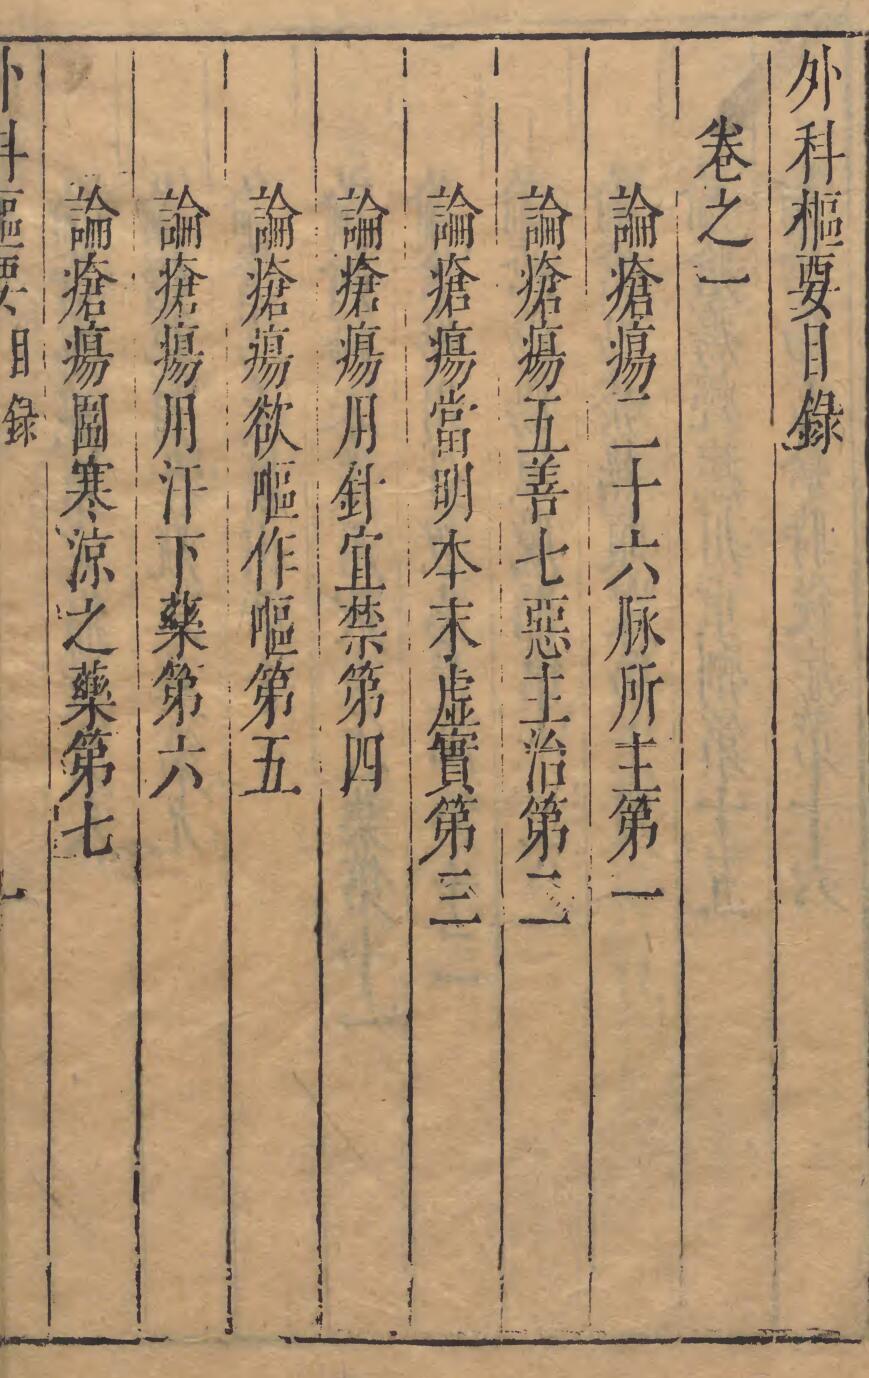 外科樞要目錄
卷之一
論瘡瘍二十六脉所主第一
論瘡瘍五善七惡主治第二
論瘡瘍當明本末虛實第三
論瘡瘍用針宜禁第四
論瘡瘍欲嘔作嘔第五
論瘡瘍用汗下藥第六
論瘡瘍圖寒凉之藥第七
外科樞要 目錄 一